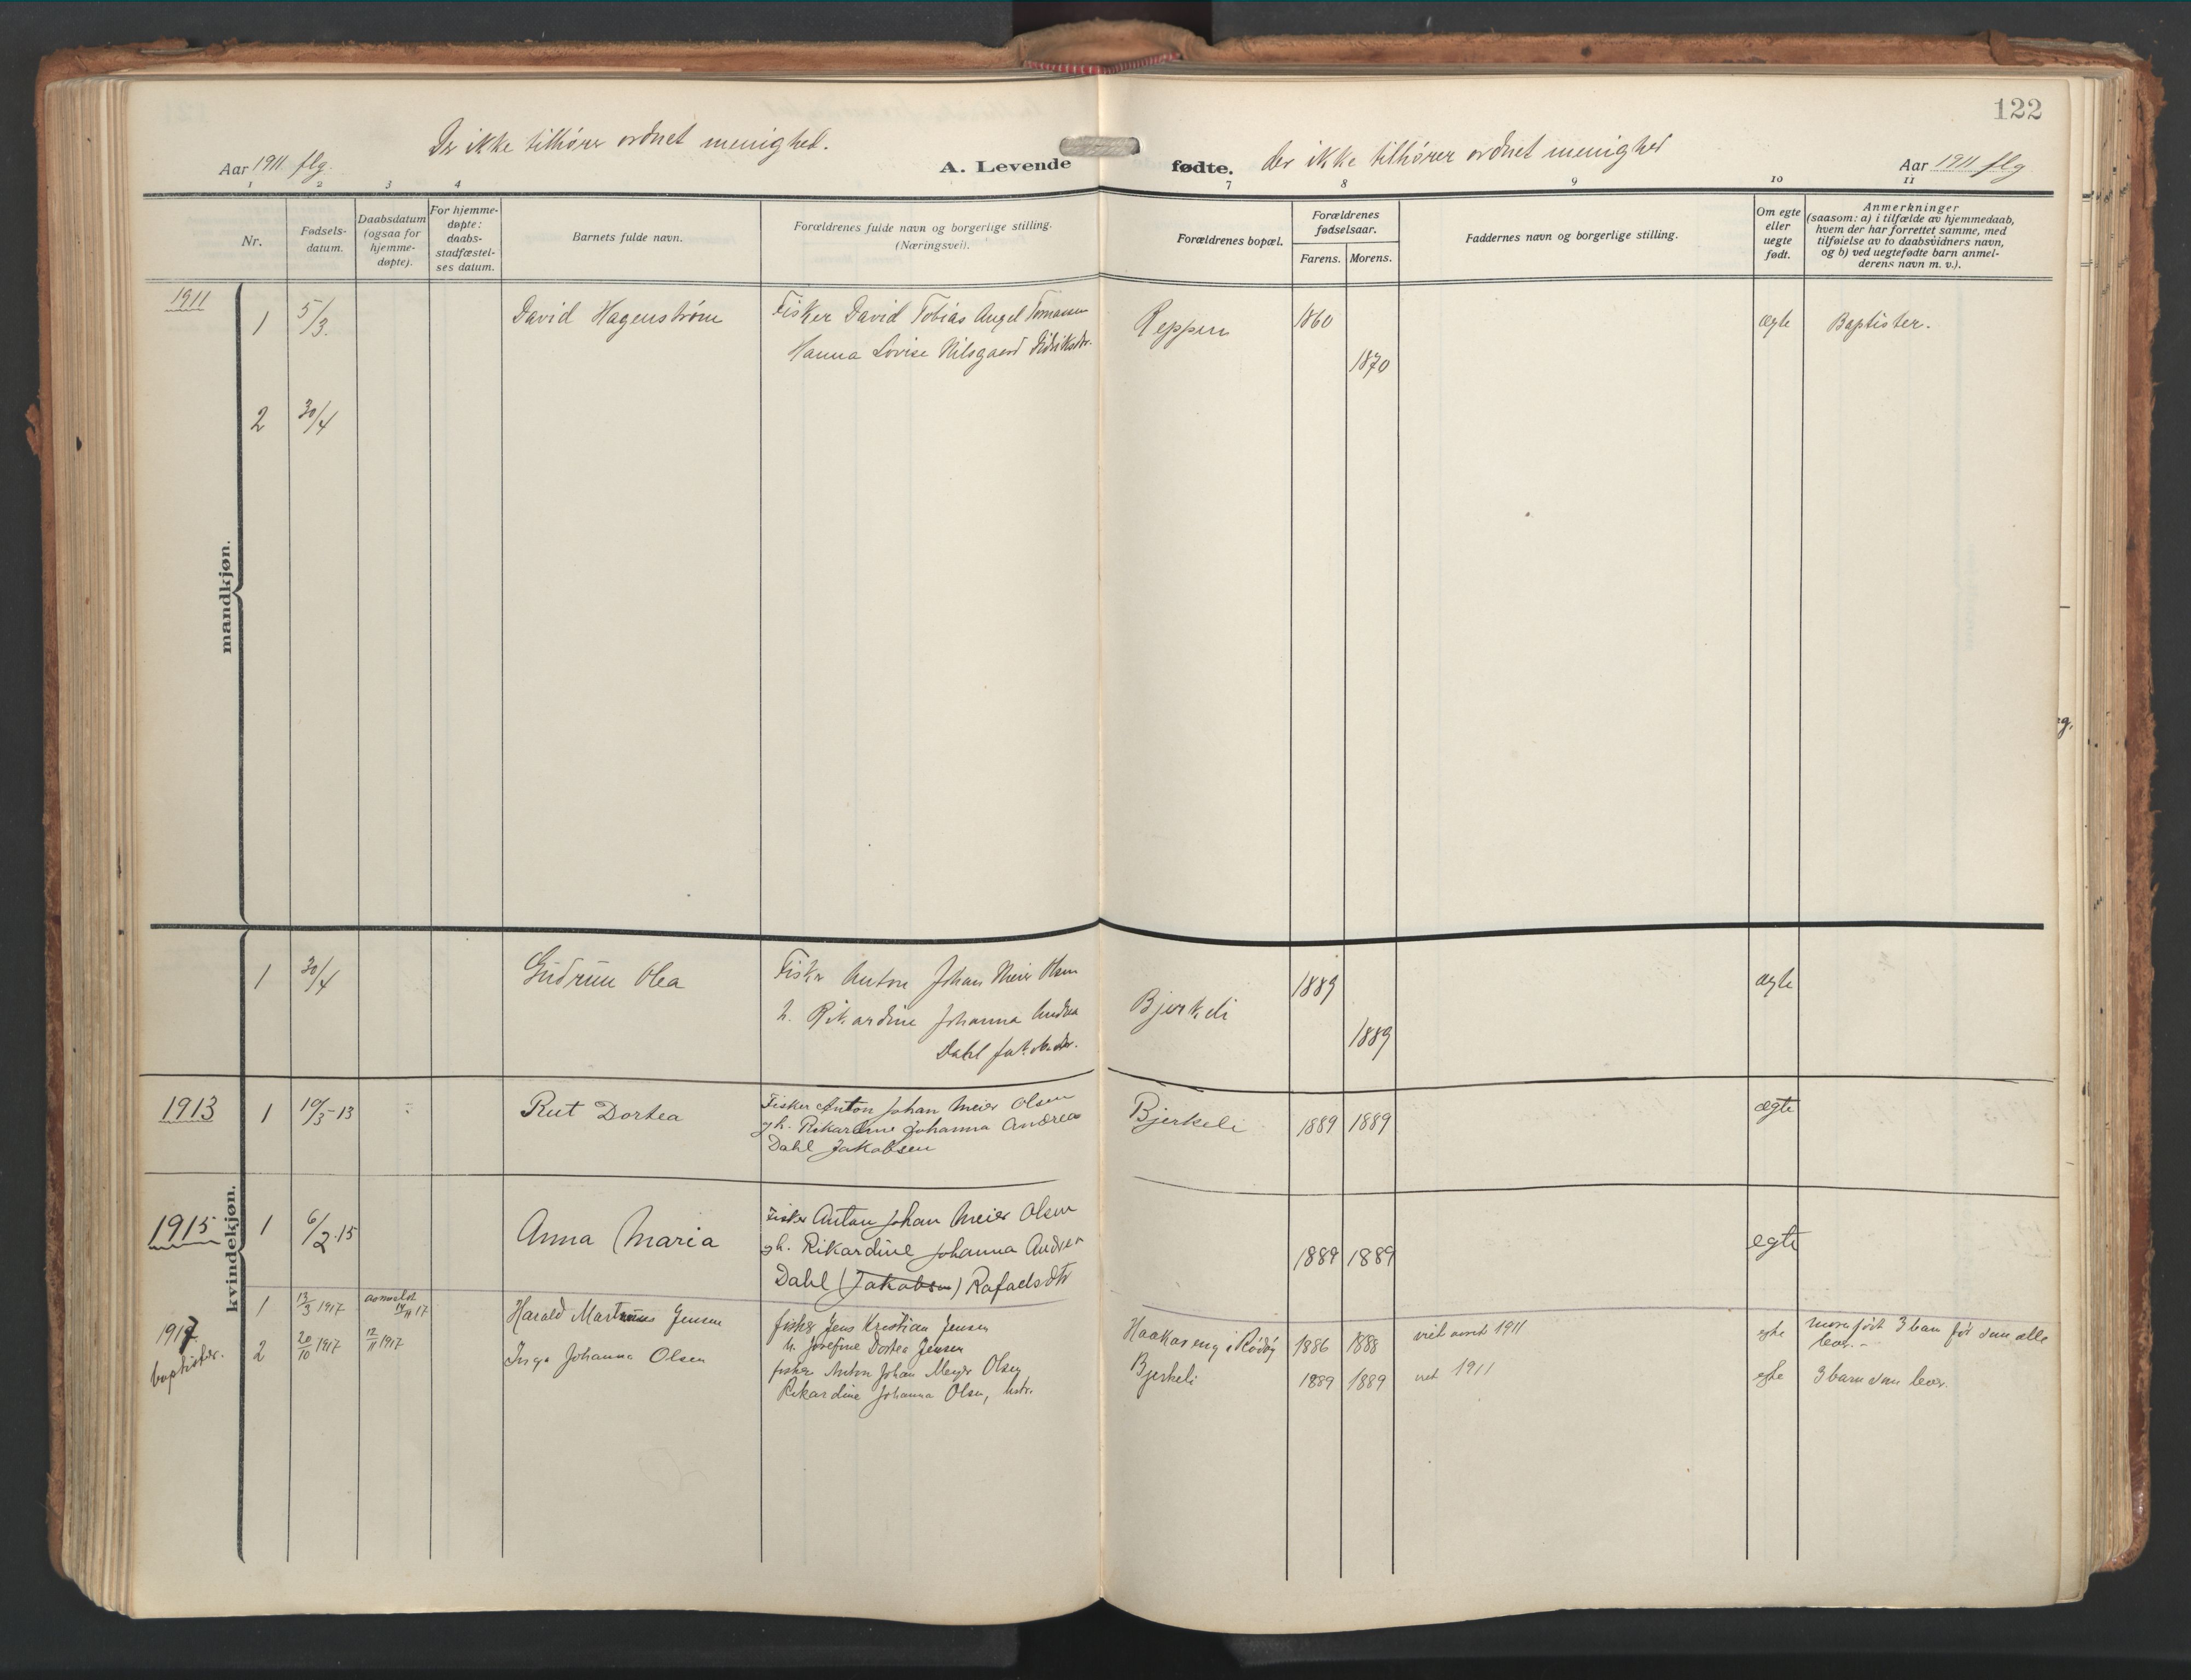 122
Der ikke tilhører ordnet menighed.
der ikke tilhører ordnet menighed
Aar 1911 flg.
A. Levende fødte.
Aar 1911 flg
1 2 3 4 7 8 9 10 11
Nr.
Fødsels-
datum.
Daabsdatum
(ogsaa for
hjemme-
døpte).
For hjemme-
døpte:
daabs-
stadfæstel-
ses datum.
Barnets fulde navn.
Forældrenes fulde navn og borgerlige stilling.
(Næringsvei).
Forældrenes bopæl.
Forældrenes
fødselsaar.
Farens. Morens.
Faddernes navn og borgerlige stilling.
Om egte
eller
uegte
født.
Anmerkninger
(saasom: a) i tilfælde av hjemmedaab,
hvem der har forrettet samme, med
tilføielse av to daabsvidners navn,
og b) ved uegtefødte barn anmel-
derens navn m. v.).
mandkjøn.
1911
1 5/3. David Hagenstrøm Fisker David Tobias Angel Tomassen Reppen 1860 ægte Baptister.
Hanna Lovise Nilsgaard Didriksdtr. 1870
2 30/4
kvindekjøn.
1 30/4 Gudrun Olea Fisker Anton Johan Meier Olsen Bjerkeli 1889 ægte
h. Rikardine Johanna Andrea 1889
Dahl
1913 1 10/3-13 Rut Dortea Fisker Anton Johan Meier Olsen Bjerkeli 1889 1889 ægte
gh. Rikardine Johanna Andrea
Dahl Jakobsen
1915 1 6/2-15 Anna Maria Fisker Anton Johan Meier Olsen 1889 1889 egte
gh. Rikardine Johanna Andrea
Dahl (Jakobsen) Rafaelsdtr
1917
baptister.
1 13/3 1917 anmeldt 14/4 17 Harald Martinus Jensen fisker Jens Kristian Jensen Haakaveng i Rødøy 1886 1888 viet 1911 egte 3 barn før som alle
h. Josefine Dortea Jensen lever.-
2 20/10 1917 12/11 1917 Inga Johanna Olsen fisker Anton Johan Meyer Olsen Bjerkeli 1889 1889 viet 1911 egte 3 barn som lever.
Rikardine Johanna Olsen, hstr.